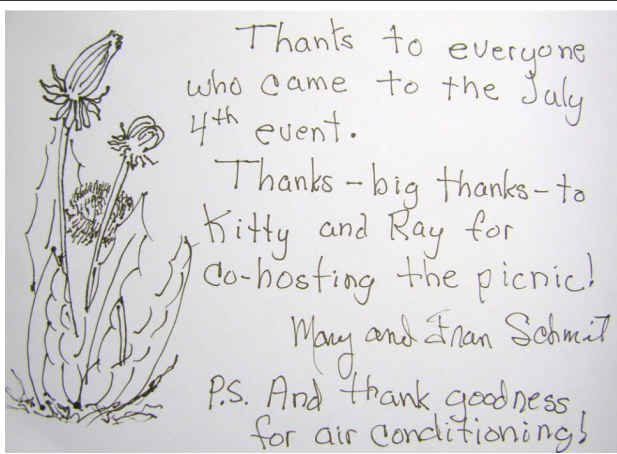 Thanks to everyone
who came to the July
4th event.
Thanks - big thanks - to
Kitty and Ray for
co-hosting the picnic!
Mary and Fran Schmit
P.S. And thank goodness
for air conditioning!